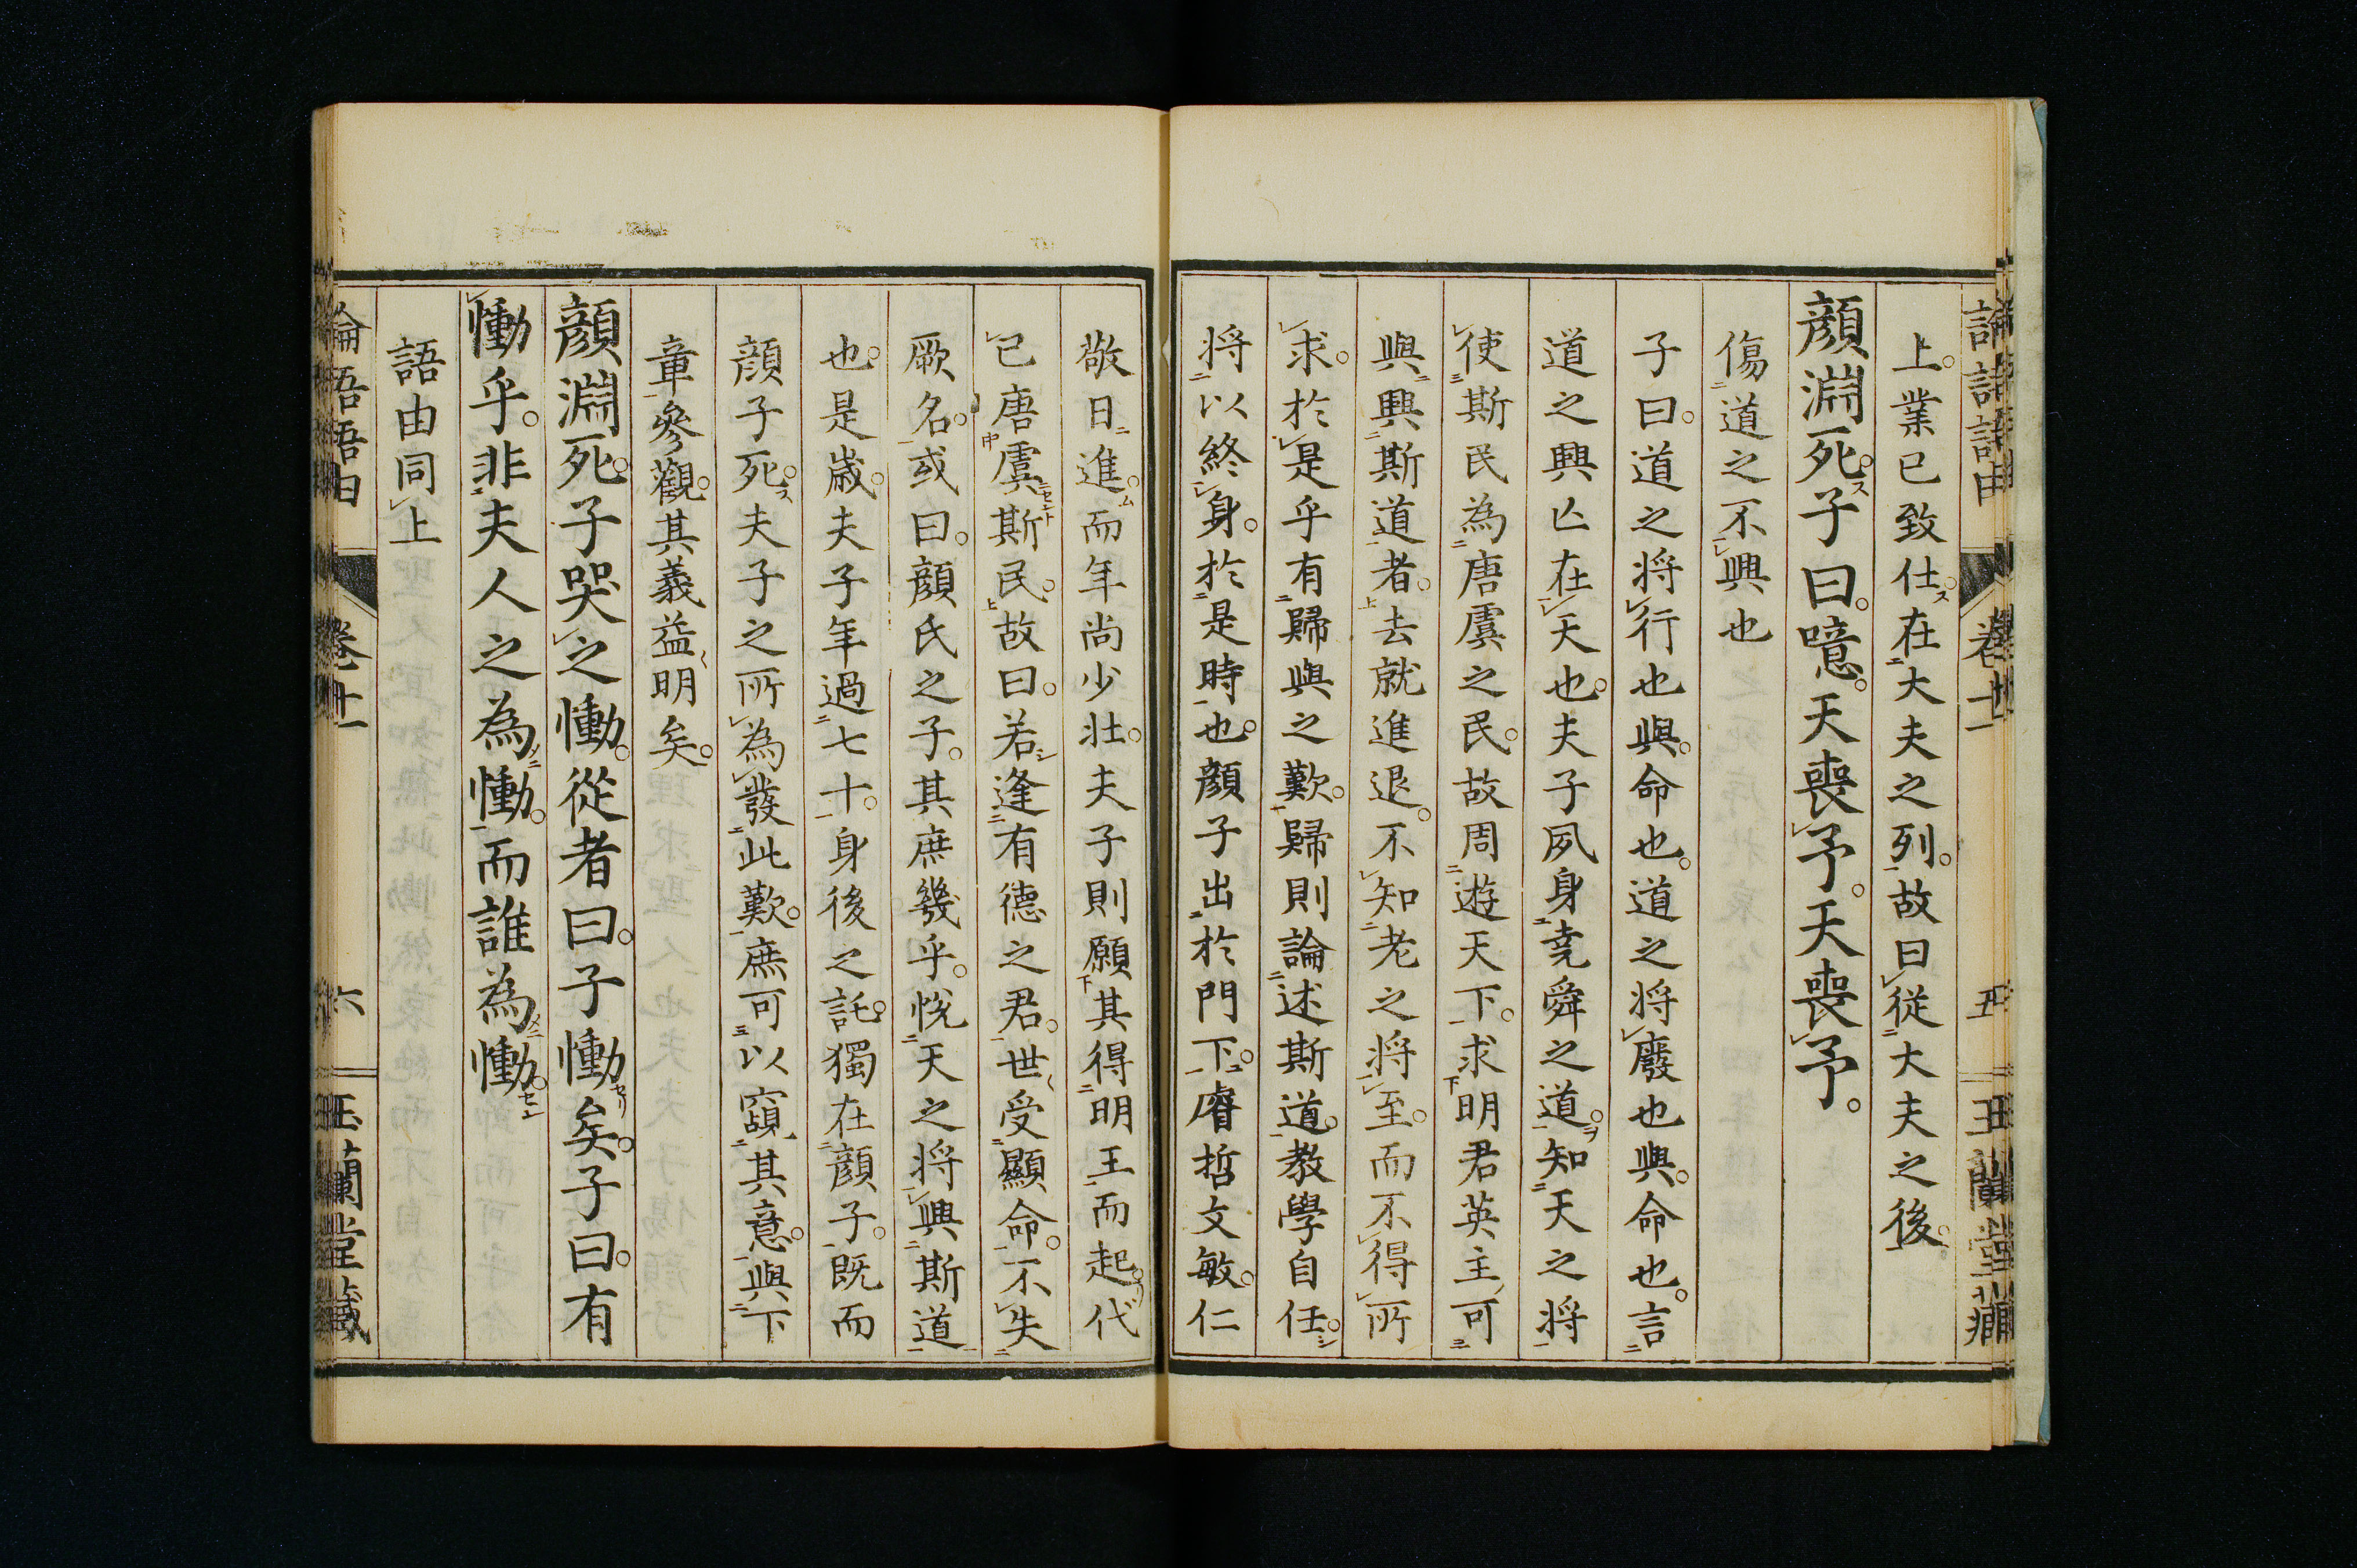 論語語由 卷十一 五 玉蘭堂藏
上。業已致仕。在大夫之列。故曰從大夫之後。
顔淵死。子曰。噫。天喪予。天喪予。
傷道之不興也
子曰。道之将行也與。命也。道之将廢也與。命也。言
道之興亾在天也。夫子夙身堯舜之道。知天之将
使斯民為唐虞之民。故周遊天下。求明君英主可
與興斯道者。去就進退。不知老之将至。而不得所
求。於是乎有歸與之歎。歸則論述斯道。教學自任。
将以終身。於是時也。顔子出於門下。睿哲文敏。仁
敬日進。而年尚少壮。夫子則願其得明王而起。代
已唐虞斯民。故曰。若逢有德之君。世受顯命。不失
厥名。或曰。顔氏之子。其庶幾乎。悦天之将興斯道
也。是歳。夫子年過七十。身後之託。獨在顔子。既而
顔子死。夫子之所為發此歎。庶可以窺其意。與下
章參觀。其義益明矣。
顔淵死。子哭之慟。從者曰。子慟矣。子曰。有
慟乎。非夫人之為慟。而誰為慟。
語由同上
論語語由 卷十一 六 玉蘭堂藏